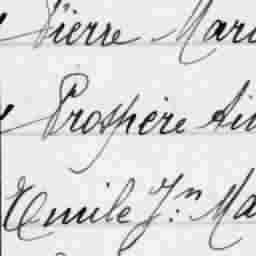 Pierre Mari
Prospère Ai
Emile Jn. Ma